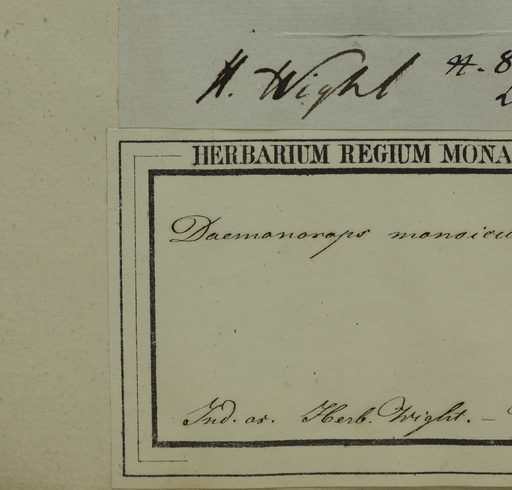 H. Wight H. 8
HERBARIUM REGIUM MONA
Daemonorops monoicu
Ind. or. Herb. Wight. –